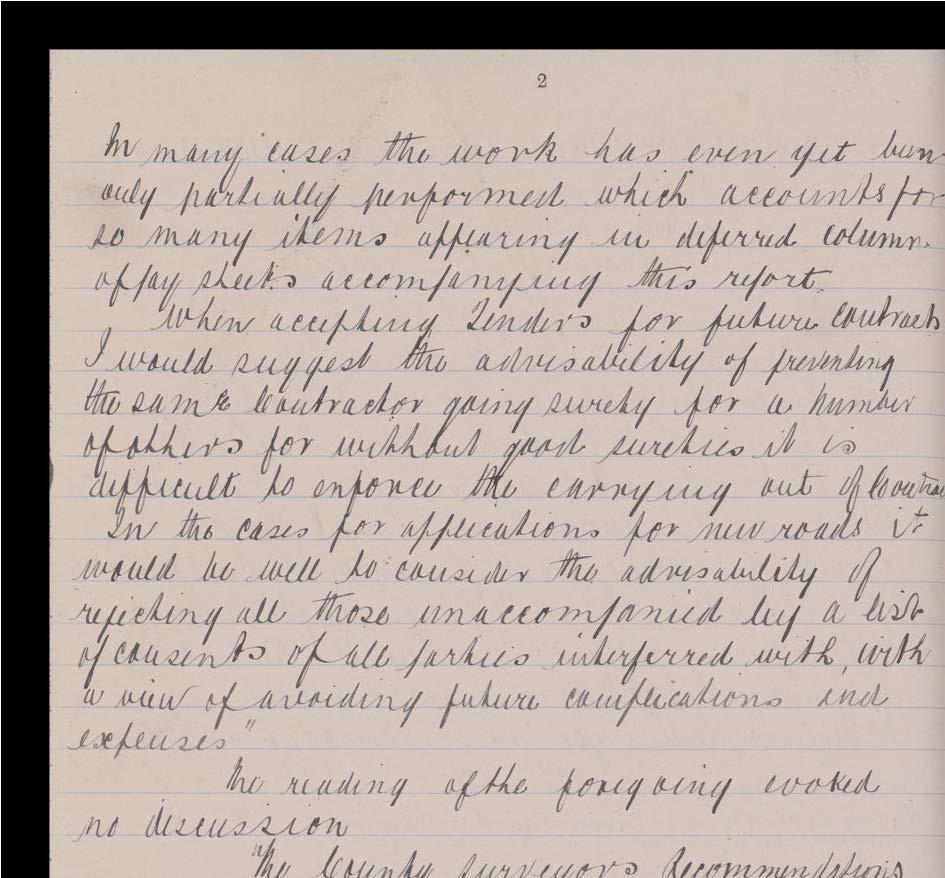 2
In many cases the work has even yet been
only partially performed which accounts for
so many items appearing in deferred column
of pay sheets accompanying this report.
When accepting Tenders for future Contracts
I would suggest the advisability of preventing
the same Contractor going surety for a number
of others for without good sureties it is
difficult to enforce the carrying out of Contrac
In the cases for applications for new roads it
would be well to consider the advisability of
rejecting all those unaccompanied by a list
of consents of all parties interferred with, with
a view of avoiding future complications and
expenses"
The reading of the foregoing evoked
no discussion
"The County Surveyors Recommendations